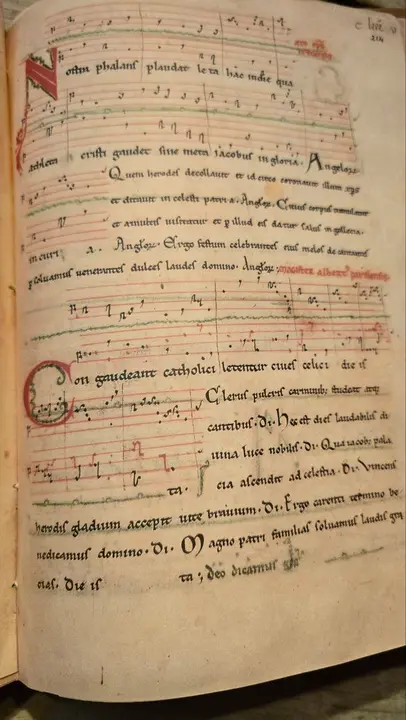 Nostra phalans plaudat leta hac in die qua
athleta cristi gaudet sine meta iacobus in gloria. Angelorum
Quem herodes decollavit et id circo coronavit illum xps
et ditavit in celesti patria. Angelor. Cuius corpus tumulatur
et a multis visitatur et p illud eis datur salus in gallecia.
in curi a. Angelor. Ergo festum celebrantes eius melos decantantes
persolvamus venerantes dulces laudes domino. Angelor. magister albertus parisiensis
Congaudeant catholici letentur cives celici die is
Clerus pulcris carminibus studeat atq
cantibus. Di. Hec est dies laudabilis di
vina luce nobilis. Di. Qua iacobus pala
ta. cia ascendit ad celestia. Di. Vincens
herodis gladium accepit vite bravium. Di. Ergo carenti termino be
nedicamus domino. Di. Magno patri familias solvamus laudis gra
cias. Die is ta; deo dicamus